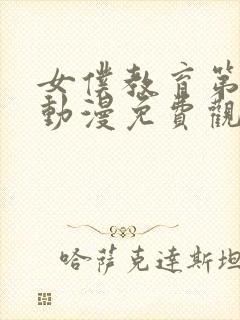 女僕教育第
動漫免費觀
哈薩克達斯坦